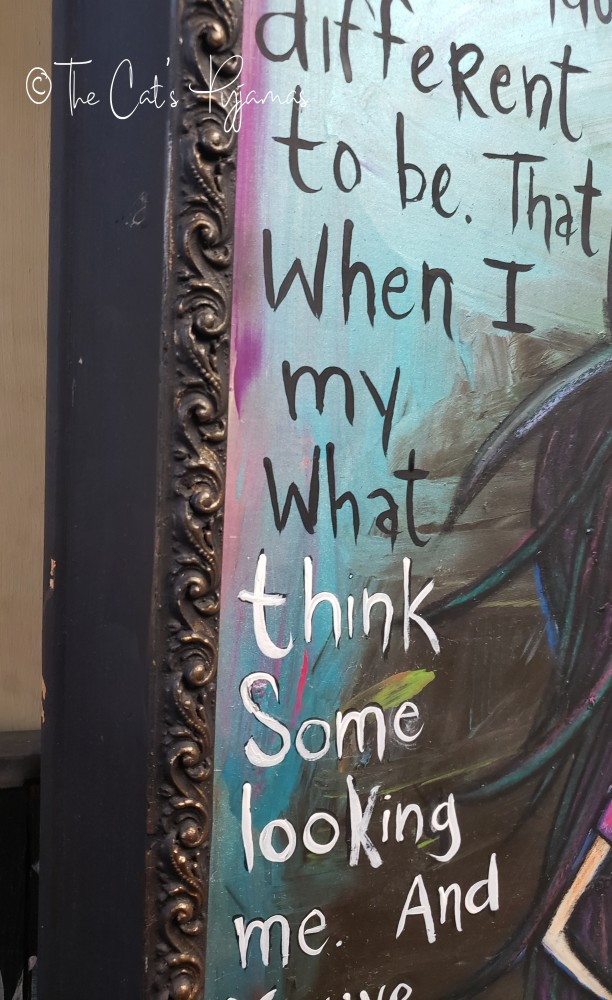 © The Cat's Pyjamas
different
to be. That
When I
my
What
think
Some
looking
me. And